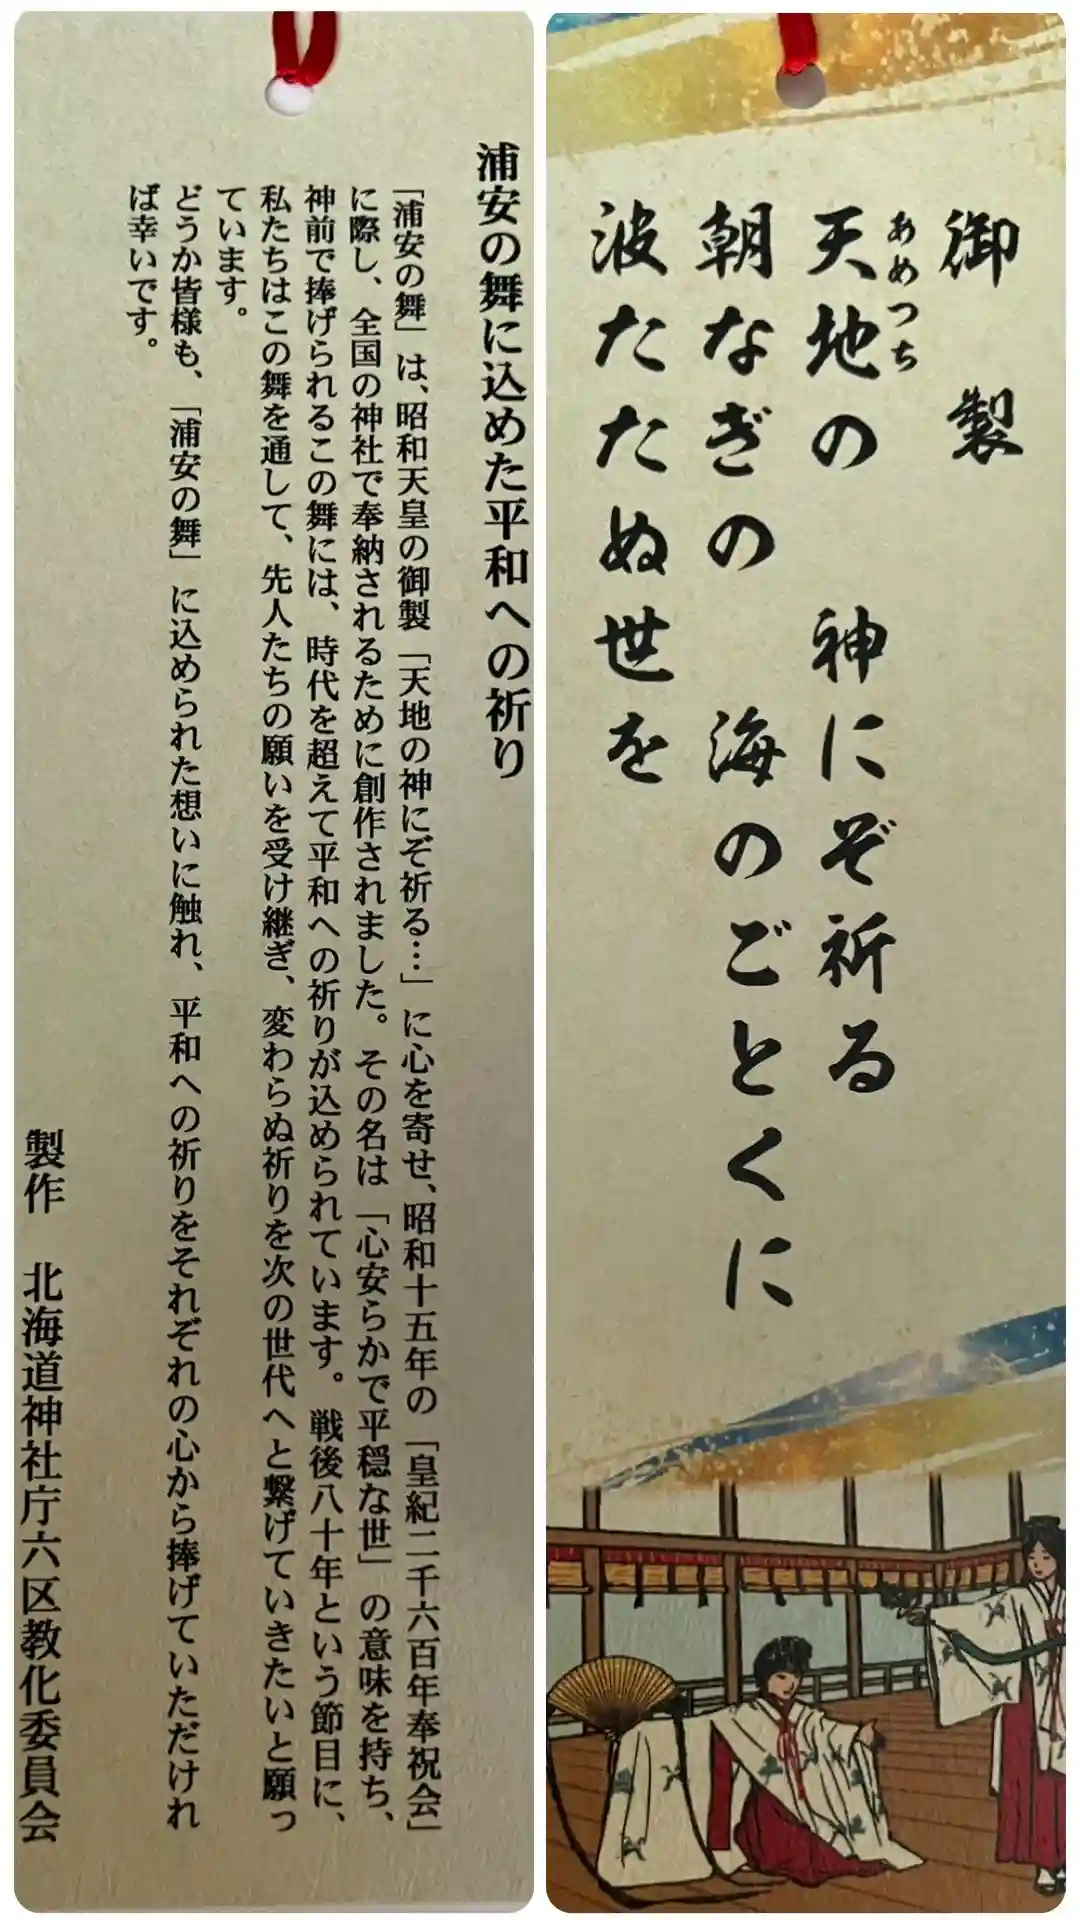 浦安の舞に込めた平和への祈り
「浦安の舞」は、昭和天皇の御製「天地の神にぞ祈る…」に心を寄せ、昭和十五年の「皇紀二千六百年奉祝会」
に際し、全国の神社で奉納されるために創作されました。その名は「心安らかで平穏な世」の意味を持ち、
神前で捧げられるこの舞には、時代を超えて平和への祈りが込められています。戦後八十年という節目に、
私たちはこの舞を通して、先人たちの願いを受け継ぎ、変わらぬ祈りを次の世代へと繋げていきたいと願っ
ています。
どうか皆様も、「浦安の舞」に込められた想いに触れ、平和への祈りをそれぞれの心から捧げていただけれ
ば幸いです。
製作　北海道神社庁六区教化委員会
御　製
あめつち
天地の　神にぞ祈る
朝なぎの　海のごとくに
波たたぬ世を